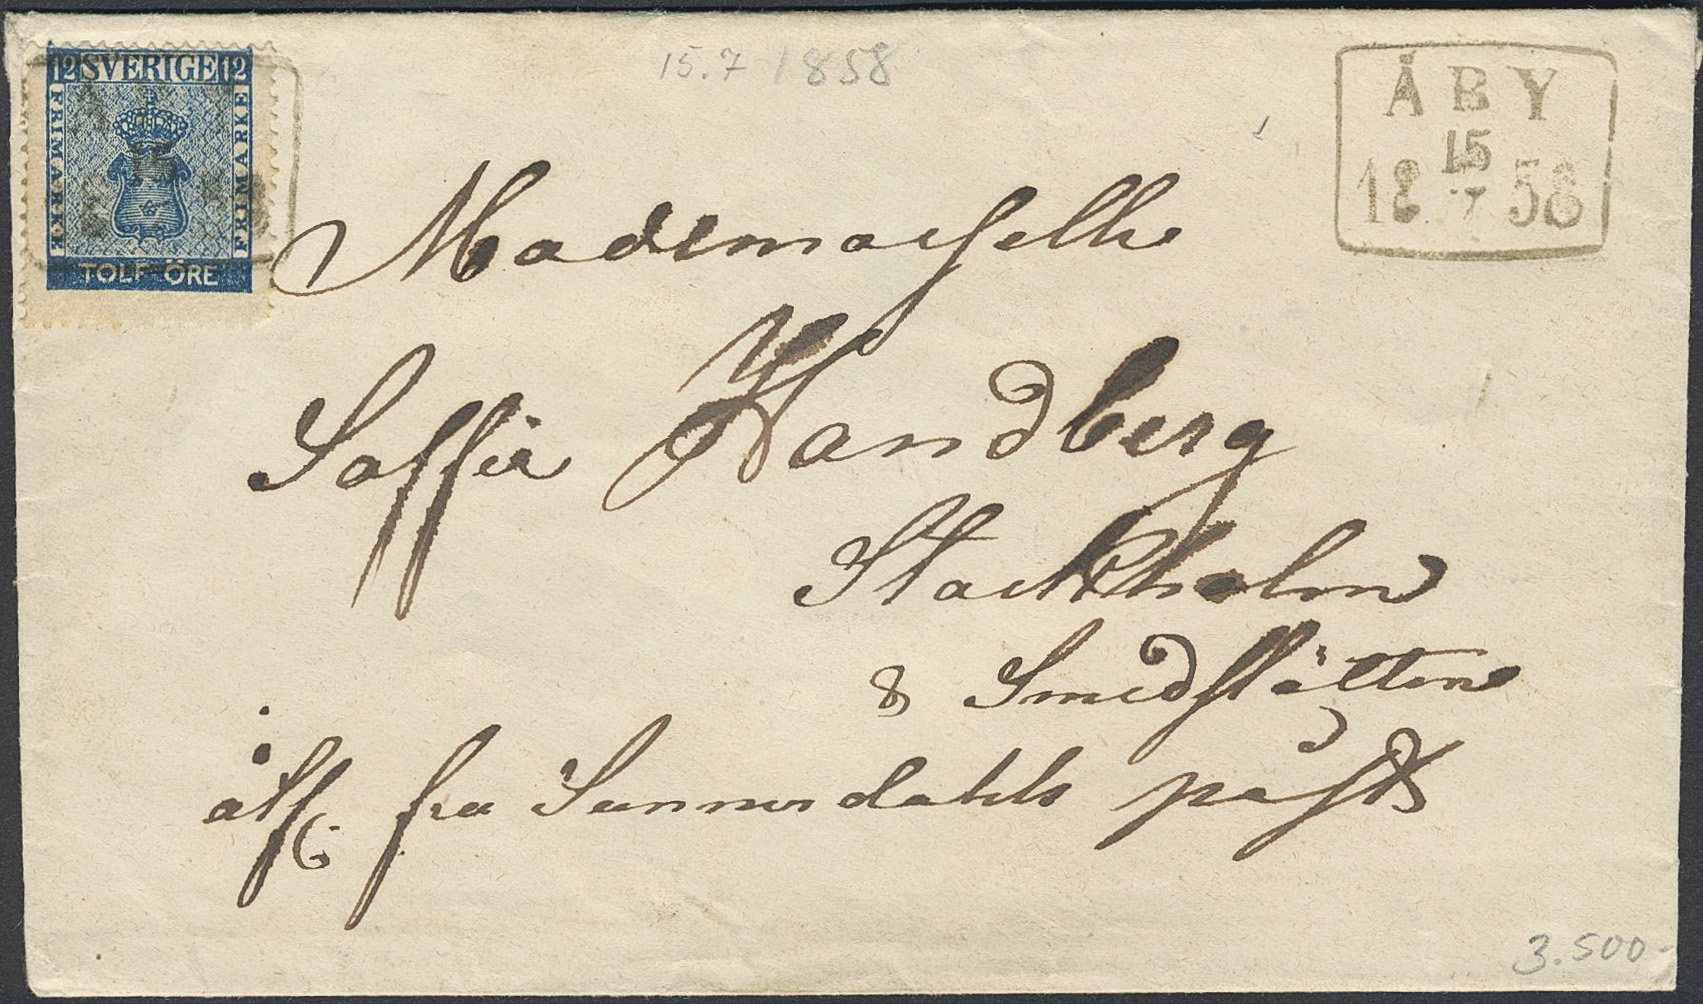 12 SVERIGE 12
FRIMARKE
FRIMARKE
TOLF ÖRE
15.7 1858
ÅBY
15
18 7 58
Mademoiselle
Saffia Handberg
Stockholm
& Smedslätten
fra Sunnerdahls påst
3.500-